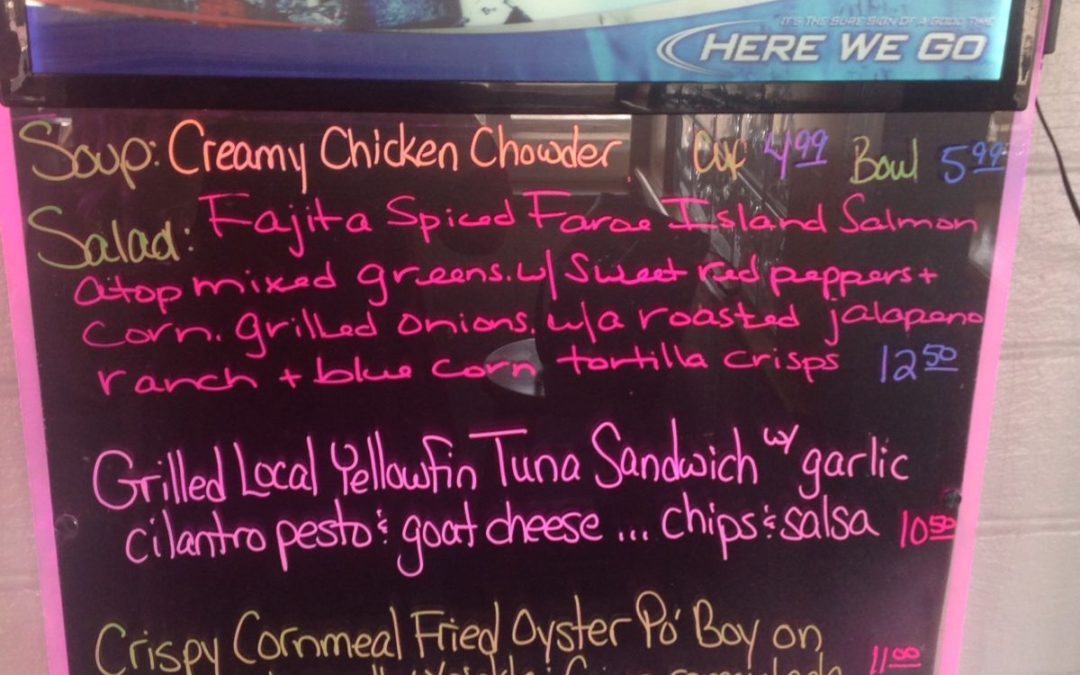 IT'S THE SURE SIGN OF A GOOD TIME
HERE WE GO
Soup: Creamy Chicken Chowder Cup 4.99 Bowl 5.99
Salad: Fajita Spiced Faroe Island Salmon
atop mixed greens. w/ Sweet red peppers +
corn. grilled onions. w/a roasted jalapeno
ranch + blue corn tortilla crisps 12.50
Grilled Local Yellowfin Tuna Sandwich w/ garlic
cilantro pesto & goat cheese ... chips & salsa 10.50
Crispy Cornmeal Fried Oyster Po' Boy on 11.00